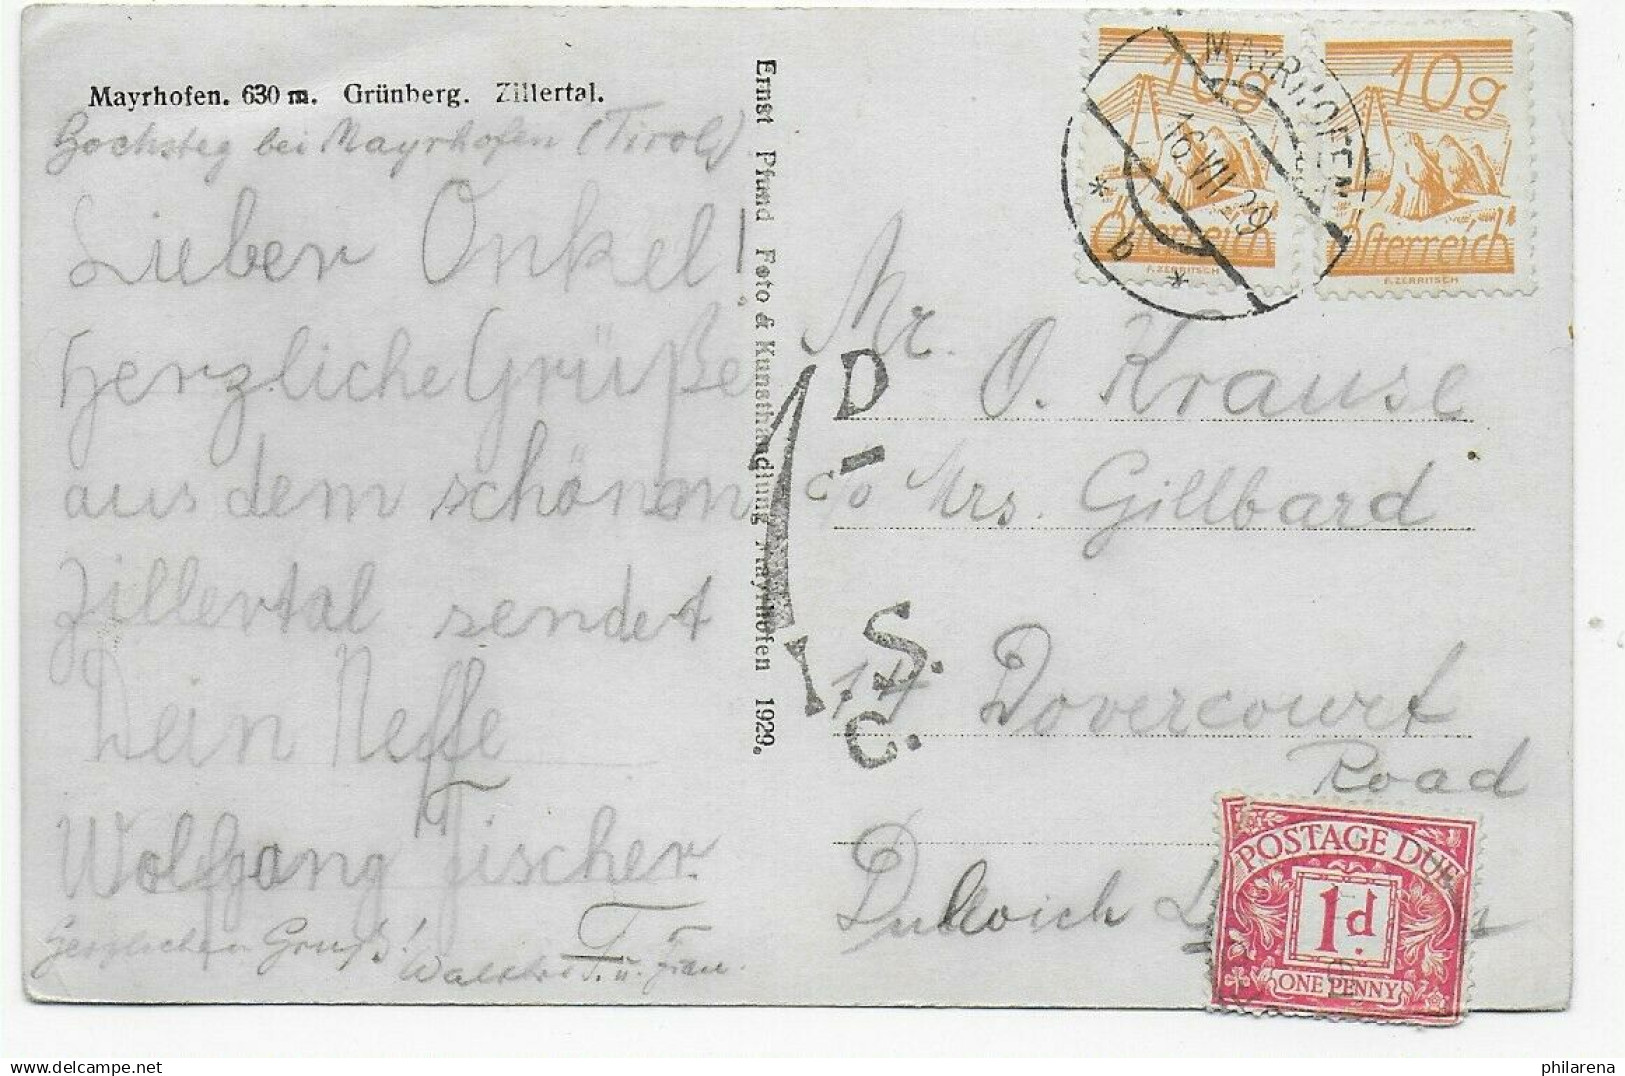 Mayrhofen. 630 m. Grünberg. Zillertal.
Hochsteg bei Mayrhofen (Tirol)
Lieber Onkel!
Herzliche Grüße
aus dem schönen
Zillertal sendet
Dein Neffe
Wolfgang Fischer
Herzlichen Gruß!
u. Frau.
T
Ernst Pfund Foto & Kunsthandlung Mayrhofen 1929.
10g
Österreich
F. ZERRITSCH
10g
Österreich
F. ZERRITSCH
MAYRHOFEN
16.VII.29
* b *
1 D
I.S.
C.
Mr. O. Krause
c/o Mrs. Gillbard
17 Dovercourt
Road
Dulwich
POSTAGE DUE
1d.
ONE PENNY
philarena.com